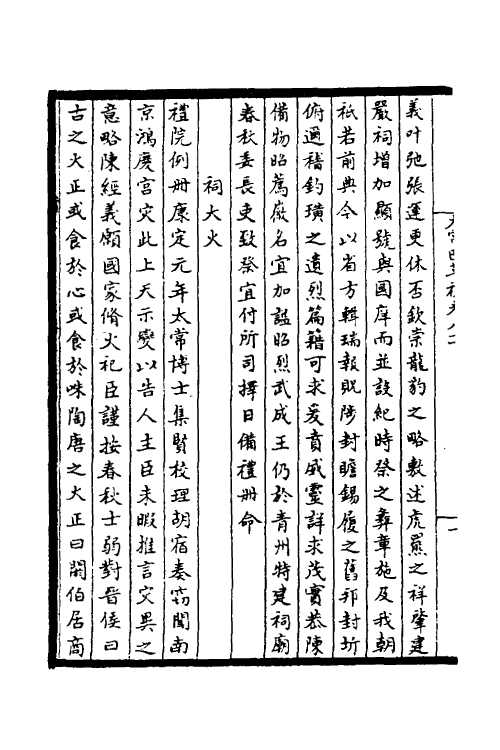 義叶弛張運更休否欽崇龍豹之略敷述虎羆之祥肇建
嚴祠增加顯號與國庠而並設紀時祭之彝章施及我朝
祇若前典今以省方輯瑞報貺陟封瞻錫履之舊邦封圻
俯過稽釣璜之遺烈篇籍可求爰賁威靈詳求茂實恭陳
備物昭薦厥名宜加謚昭烈武成王仍於青州特建祠廟
春秋委長吏致祭宜付所司擇日備禮册命
祠大火
禮院例册康定元年太常博士集賢校理胡宿奏竊聞南
京鴻慶宮灾此上天示變以告人主臣未暇推言灾異之
意略陳經義願國家脩火祀臣謹按春秋士弱對晉侯曰
古之火正或食於心或食於咮陶唐之火正曰閼伯居商